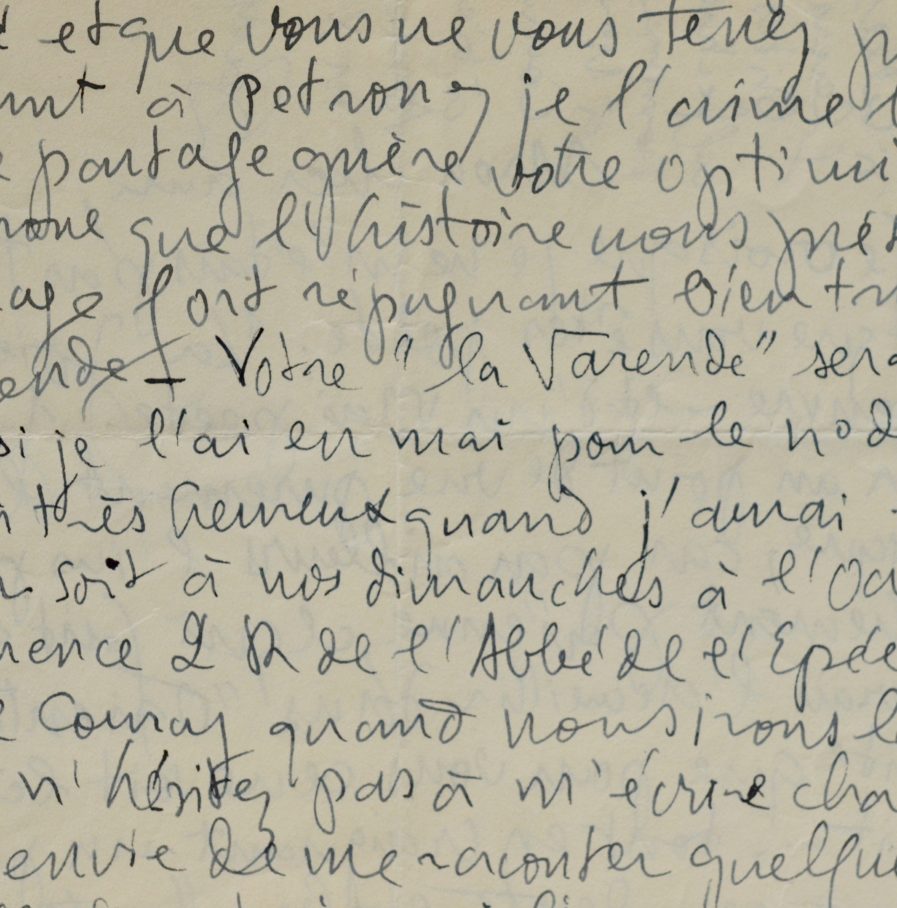 et que vous ne vous tenez
à Petrone, je l'aime
partage guère votre optimi
rone que l'histoire nous prés
age fort répugnant bien
ende - Votre "la Varende" sera
si je l'ai en mai pour le no d
très heureux quand j'aurai
soit à nos dimanches à l'Oa
mence 2 R de l'Abbé de l'Epée
Couray quand nous irons l
n'hésitez pas à m'écrire cha
envie de me raconter quelque